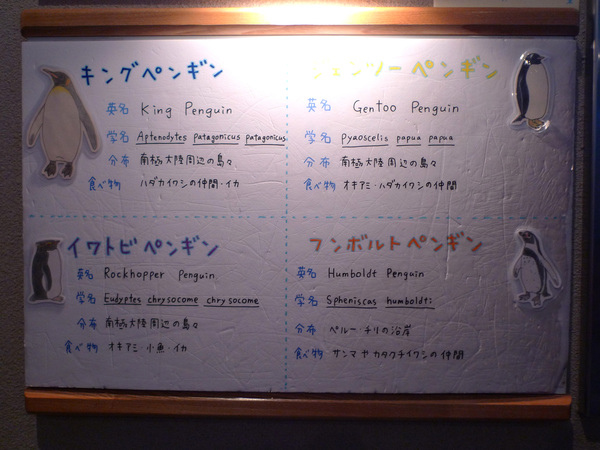 キングペンギン
英名 King Penguin
学名 Aptenodytes patagonicus patagonicus
分布 南極大陸周辺の島々
食べ物 ハダカイワシの仲間・イカ
ジェンツーペンギン
英名 Gentoo Penguin
学名 Pygoscelis papua papua
分布 南極大陸周辺の島々
食べ物 オキアミ・ハダカイワシの仲間
イワトビペンギン
英名 Rockhopper Penguin
学名 Eudyptes chrysocome chrysocome
分布 南極大陸周辺の島々
食べ物 オキアミ・小魚・イカ
フンボルトペンギン
英名 Humboldt Penguin
学名 Spheniscas humboldti
分布 ペルー・チリの沿岸
食べ物 サンマやカタクチイワシの仲間